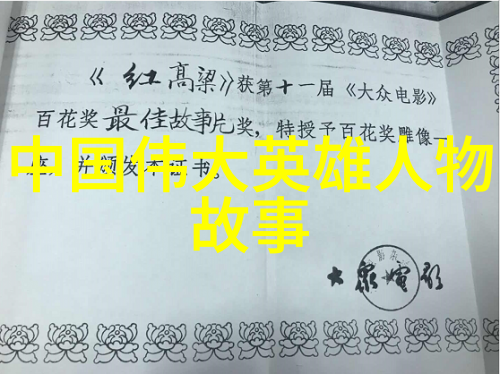 《红高粱》获第十一届《大众电影》
百花奖最佳故事片奖，特授予百花奖雕像一
座，并颁发本证书。
中国伟大英雄人物
故事
大众电影